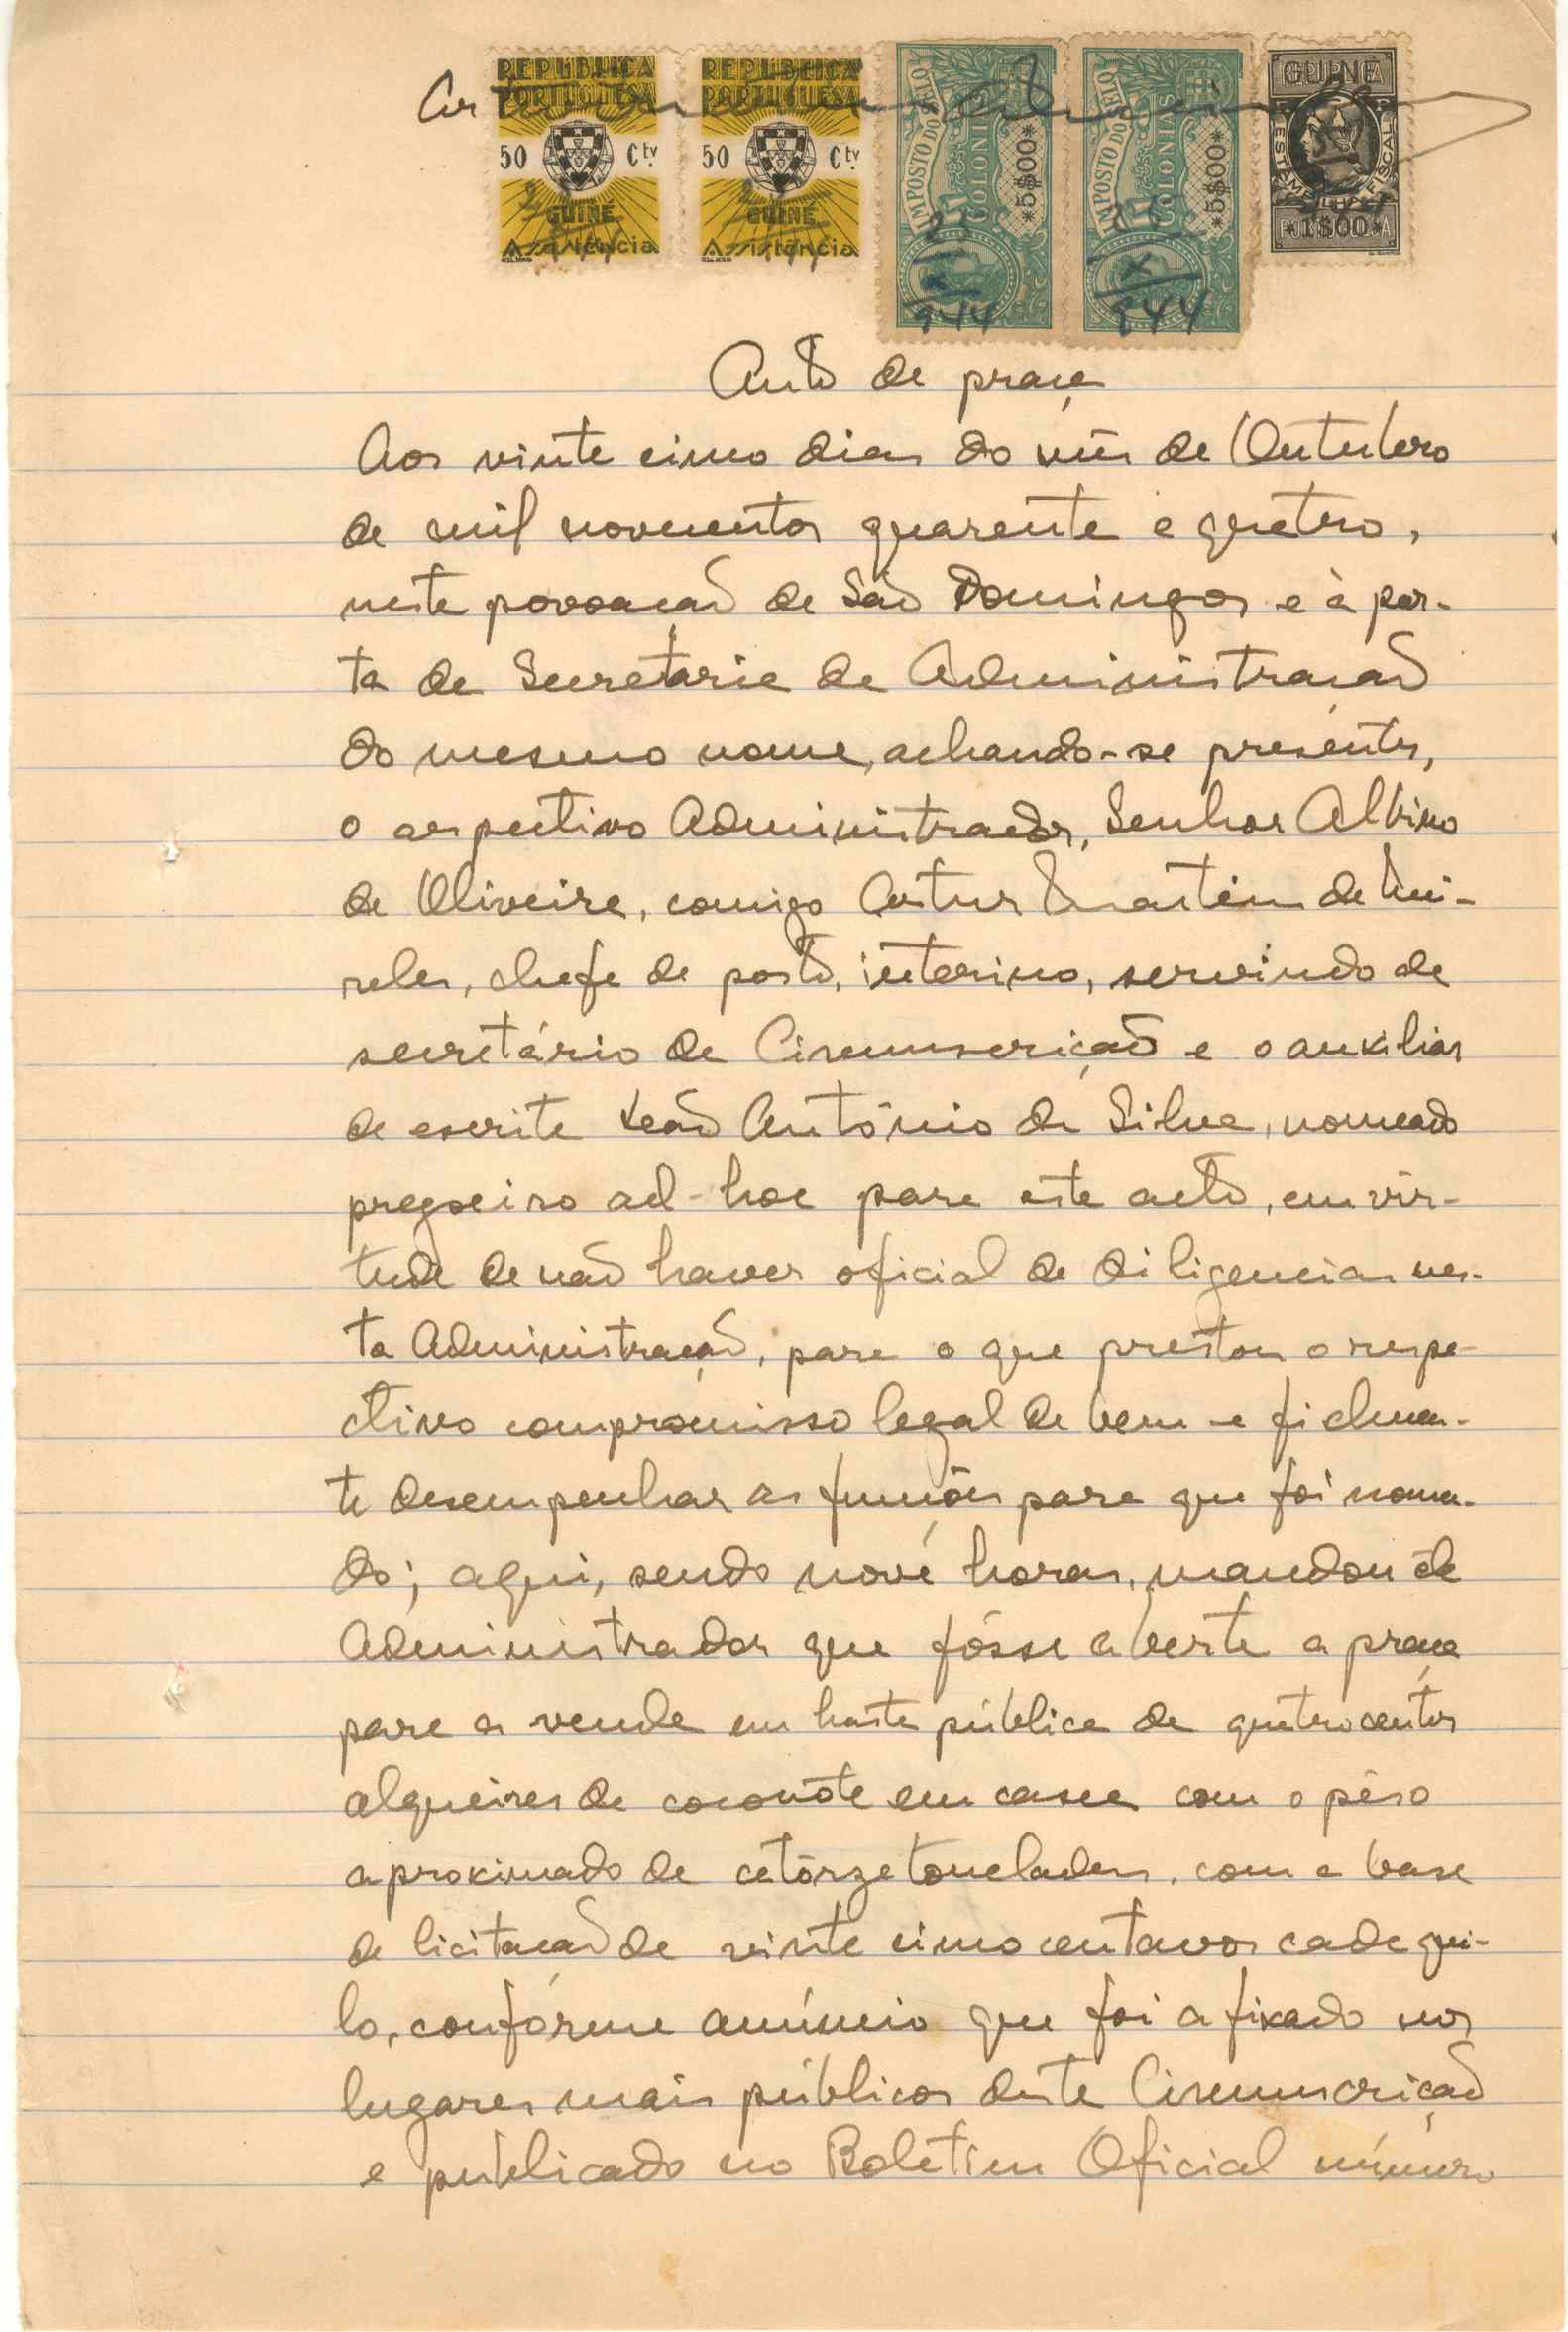 REPÚBLICA PORTUGUESA 50 Ctv. GUINÉ Assistência
REPÚBLICA PORTUGUESA 50 Ctv. GUINÉ Assistência
IMPOSTO DO SELO COLONIAS *5$00*
IMPOSTO DO SELO COLONIAS *5$00*
GUINÉ ESTAMPILHA FISCAL *1$00*
25 X 944
X 944
Auto de praça
Aos vinte cinco dias do mês de Outubro
de mil novecentos quarenta e quatro,
nesta povoação de São Domingos e à por-
ta da Secretária da Administração
do mesmo nome, achando-se presentes,
o respectivo Administrador, Senhor Albino
de Oliveira, comigo Artur Martins de Mei-
reles, chefe de posto, interino, servindo de
secretário da Circunscrição e o auxiliar
de escrita Leão António da Silva, nomeado
pregoeiro ad-hoc para este acto, em vir-
tude de não haver oficial de diligencias nes-
ta Administração, para o que prestou o respe-
ctivo compromisso legal de bem e fielmen-
te desempenhar as funções para que foi nomea-
do; aqui, sendo nove horas, mandou êle
Administrador que fôsse aberta a praça
para a venda em hasta pública de quatrocentos
alqueires de coconote em casca com o pêso
aproximado de catorze toneladas, com a base
de licitação de vinte cinco centavos cada qui-
lo, conforme anúncio que foi afixado nos
lugares mais públicos desta Circunscrição
e publicado no Boletim Oficial número